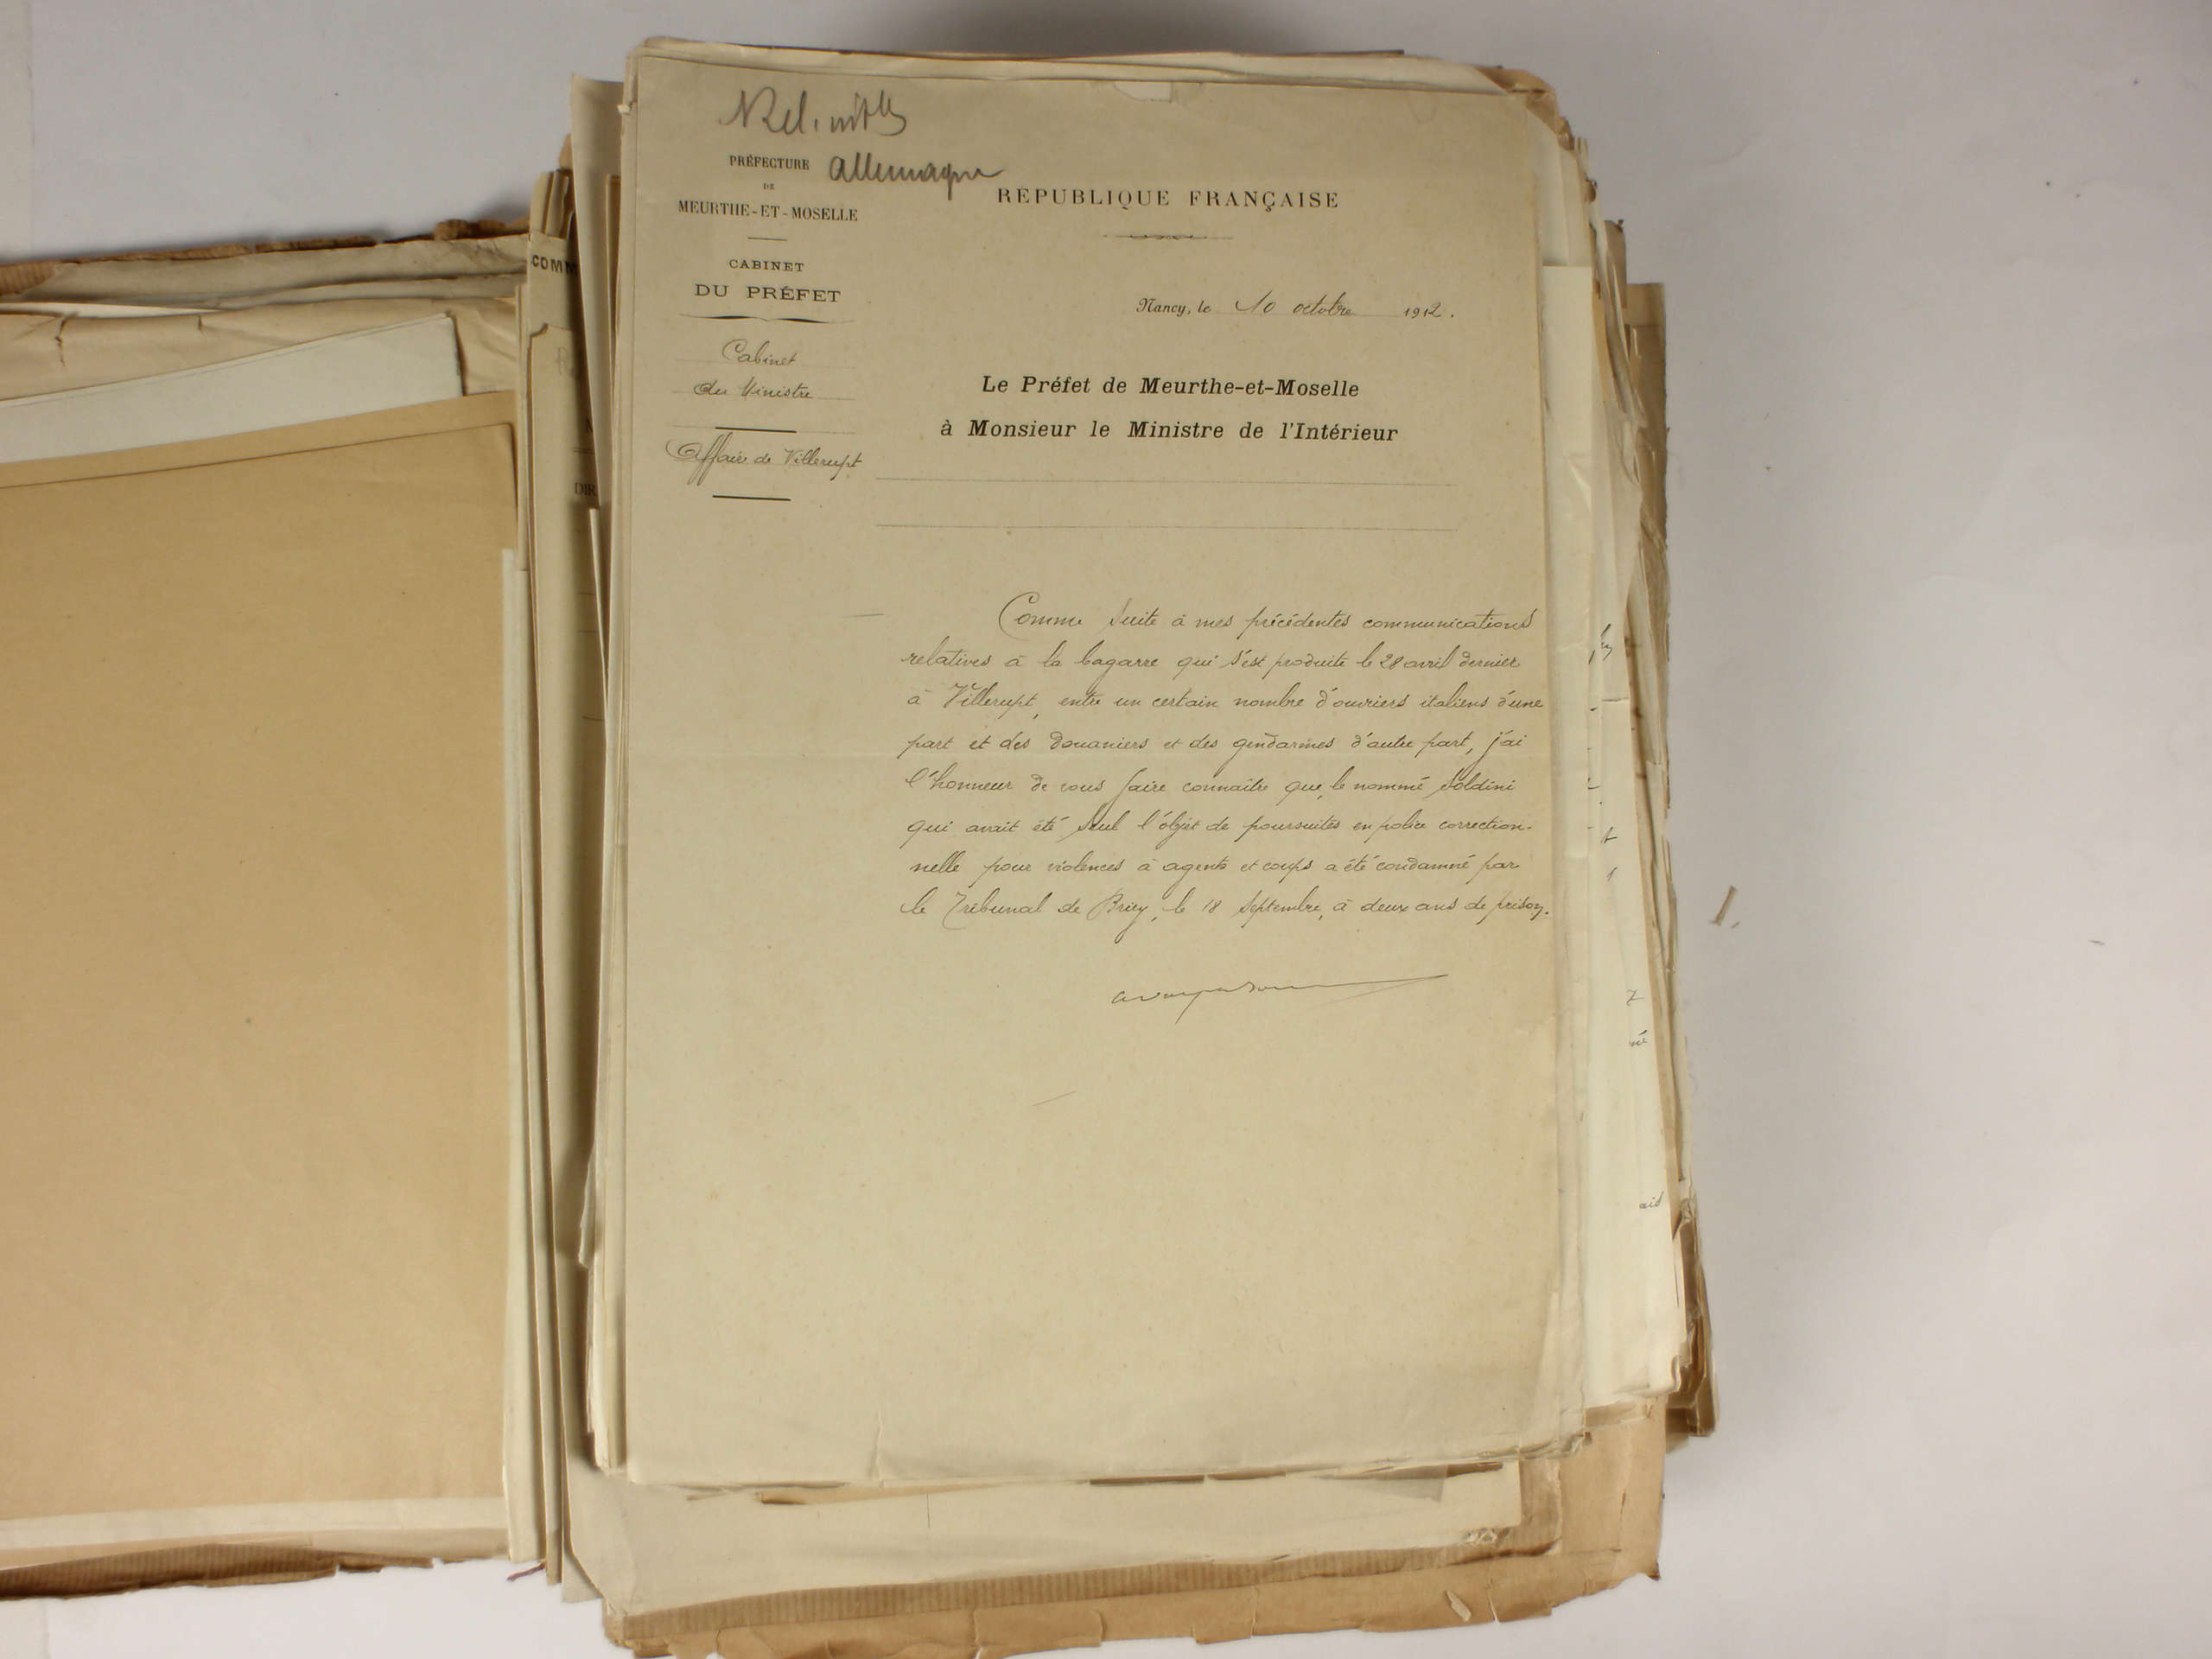 Allemagne
PRÉFECTURE
DE
MEURTHE-ET-MOSELLE
RÉPUBLIQUE FRANÇAISE
CABINET
DU PRÉFET
Nancy, le 10 octobre 1912.
Cabinet
du Ministre
Affaire de Villerupt
Le Préfet de Meurthe-et-Moselle
à Monsieur le Ministre de l'Intérieur
Comme suite à mes précédentes communications
relatives à la bagarre qui s'est produite le 28 avril dernier
à Villerupt, entre un certain nombre d'ouvriers italiens d'une
part et des douaniers et des gendarmes d'autre part, j'ai
l'honneur de vous faire connaître que, le nommé Soldini
qui avait été seul l'objet de poursuites en police correction-
nelle pour violences à agents et coups a été condamné par
le Tribunal de Briey, le 18 Septembre, à deux ans de prison.
COMM
DIR